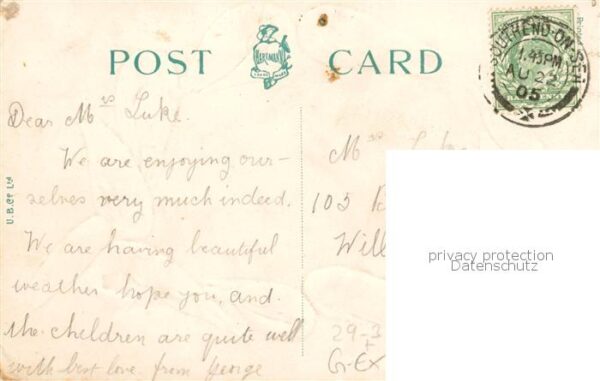 POST CARD
HARTMANN
TRADE MARK
SOUTHEND-ON-SEA
1.45PM
AU 22
05
Dear Mrs Luke.
We are enjoying our-
selves very much indeed.
We are having beautiful
weather hope you, and
the children are quite well
with best love from George
Mrs
103
Will
U.B.Co Ltd
29-3
G-Ex
privacy protection
Datenschutz